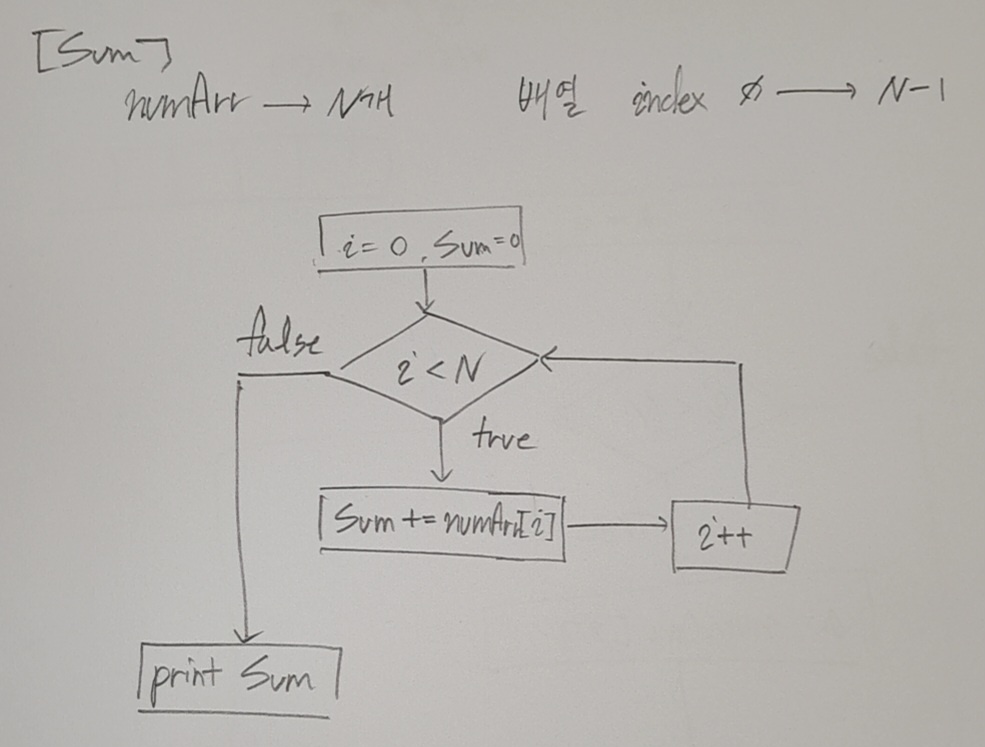 [Sum]
numArr → N개 배열 index 0 → N-1
i = 0, Sum = 0
i < N
false
true
Sum += numArr[i]
i++
print Sum